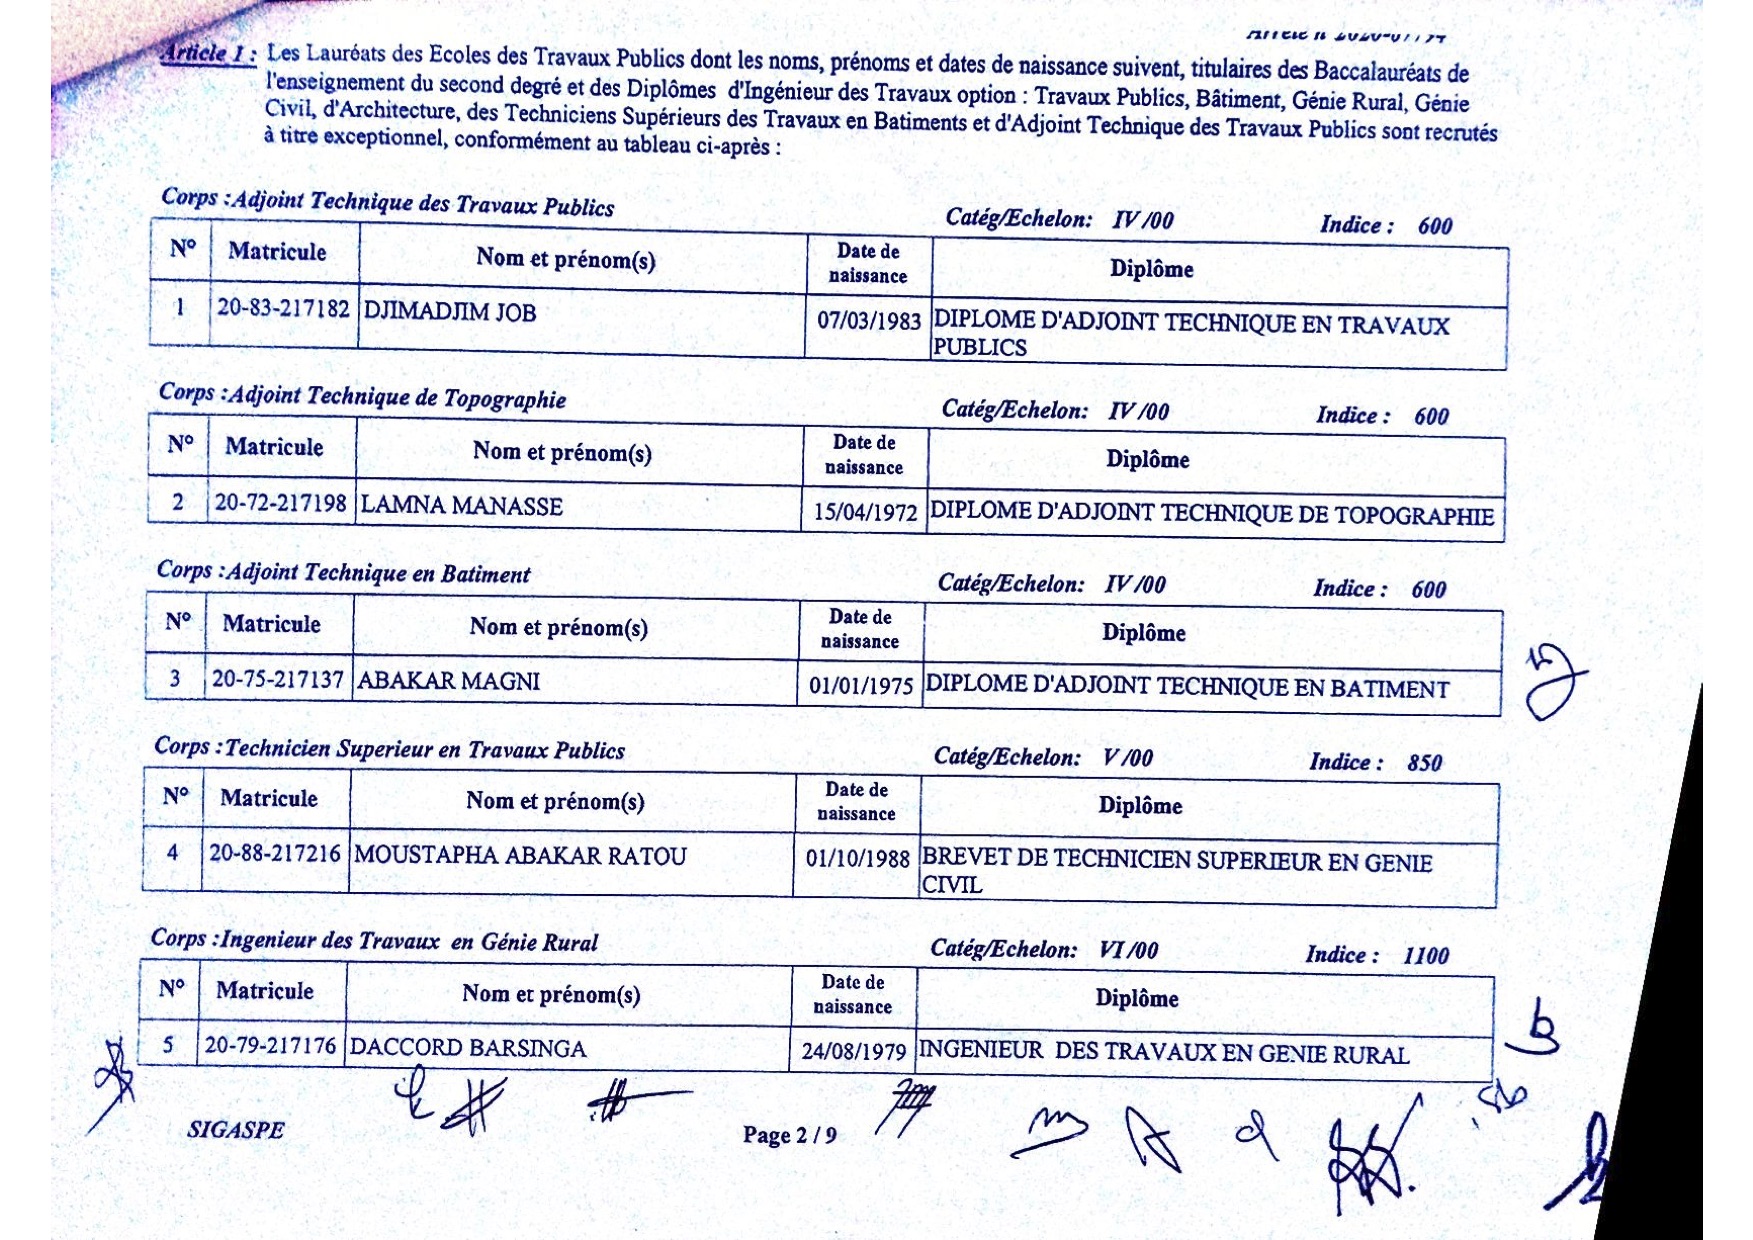 Article 1 : Les Lauréats des Ecoles des Travaux Publics dont les noms, prénoms et dates de naissance suivent, titulaires des Baccalauréats de
l'enseignement du second degré et des Diplômes d'Ingénieur des Travaux option : Travaux Publics, Bâtiment, Génie Rural, Génie
Civil, d'Architecture, des Techniciens Supérieurs des Travaux en Batiments et d'Adjoint Technique des Travaux Publics sont recrutés
à titre exceptionnel, conformément au tableau ci-après :
Corps : Adjoint Technique des Travaux Publics Catég/Echelon: IV /00 Indice : 600
N° Matricule Nom et prénom(s) Date de naissance Diplôme
1 20-83-217182 DJIMADJIM JOB 07/03/1983 DIPLOME D'ADJOINT TECHNIQUE EN TRAVAUX
PUBLICS
Corps : Adjoint Technique de Topographie Catég/Echelon: IV /00 Indice : 600
N° Matricule Nom et prénom(s) Date de naissance Diplôme
2 20-72-217198 LAMNA MANASSE 15/04/1972 DIPLOME D'ADJOINT TECHNIQUE DE TOPOGRAPHIE
Corps : Adjoint Technique en Batiment Catég/Echelon: IV /00 Indice : 600
N° Matricule Nom et prénom(s) Date de naissance Diplôme
3 20-75-217137 ABAKAR MAGNI 01/01/1975 DIPLOME D'ADJOINT TECHNIQUE EN BATIMENT
Corps : Technicien Superieur en Travaux Publics Catég/Echelon: V /00 Indice : 850
N° Matricule Nom et prénom(s) Date de naissance Diplôme
4 20-88-217216 MOUSTAPHA ABAKAR RATOU 01/10/1988 BREVET DE TECHNICIEN SUPERIEUR EN GENIE
CIVIL
Corps : Ingenieur des Travaux en Génie Rural Catég/Echelon: VI /00 Indice : 1100
N° Matricule Nom et prénom(s) Date de naissance Diplôme
5 20-79-217176 DACCORD BARSINGA 24/08/1979 INGENIEUR DES TRAVAUX EN GENIE RURAL
SIGASPE Page 2 / 9